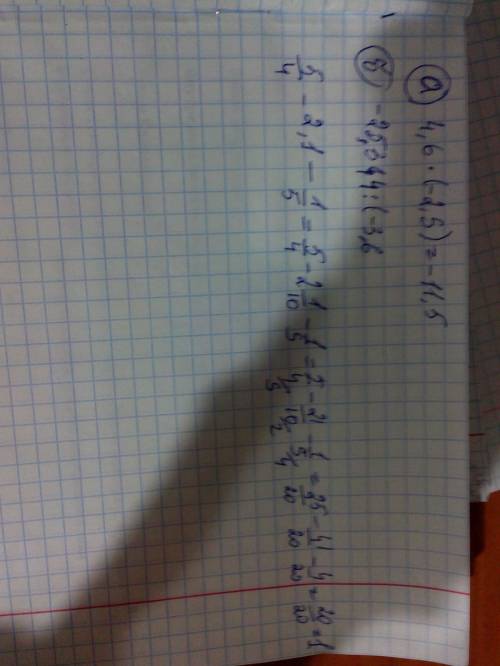 а) 4,6 · (-2,5) = -11,5
б) -25,344 : (-3,6
5/4 - 2,1 - 1/5 = 5/4 - 2 1/10 - 1/5 = 5/4 - 21/10 - 1/5 = 25/20 - 41/20 - 4/20 = 20/20 = 1